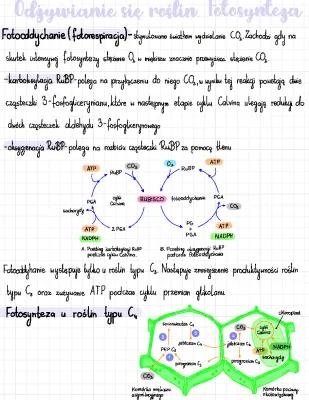 Odżywianie się roślin Fotosynteza
Fotooddychanie (fotorespiracja) - stymulowane światłem wydzielanie CO₂. Zachodzi gdy na
skutek intensywnej fotosyntezy stężenie O₂ w miękiszu znacznie przewyższa stężenie CO₂.
- karboksylacja RuBP - polega na przyłączeniu do niego CO₂, w wyniku tej reakcji powstają dwie
cząsteczki 3-fosfoglicerynianu, które w następnym etapie cyklu Calvina ulegają redukcji do
dwóch cząsteczek aldehydu 3-fosfoglicerynowego
- oksygenacja RuBP - polega na rozbiciu cząsteczki RuBP za pomocą tlenu
ATP CO₂ O₂ ATP
RuBP RuBP
PGA cykl Calvina RUBISCO fotooddychanie PGA
węglowodany CO₂
ATP 2 PGA PG + PGA ATP
NADPH NADPH
A. Przebieg karboksylacji RuBP
podczas cyklu Calvina.
B. Przebieg oksygenacji RuBP
podczas fotooddychania
Fotooddychanie występuje tylko u roślin typu C₃. Następuje zmniejszenie produktywności roślin
typu C₃ oraz zużywanie ATP podczas cyklu przemian glikolanu.
Fotosynteza u roślin typu C₄
chloroplast
szczawiooctan C₄
CO₂
cykl Calvina
jabłczan C₄
jabłczan C₄
PEP C₃
ATP NADPH
pirogronian C₃
pirogronian C₃
węglowodany
CO₂
Komórka miękiszu
asymilacyjnego
Komórka pochwy
okołowiązkowej